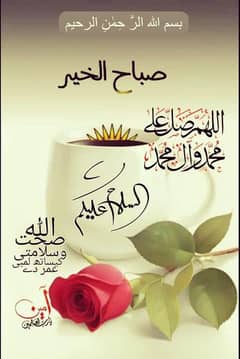 بسم الله الرَّ حِمٰنِ الرحيم
صباح الخير
اللهم صل علی
محمد وآل محمد
السلام علیکم
اللہ
صحت
وسلامتی
کیساتھ لمبی
عمر دے
آمین